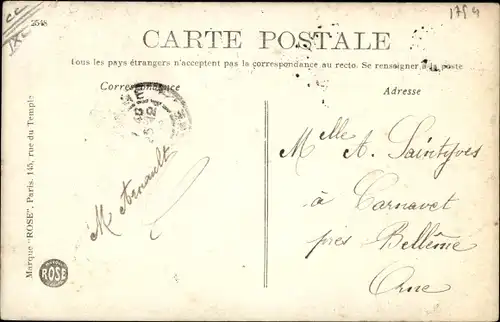 2548
1754
CARTE POSTALE
Tous les pays étrangers n'acceptent pas la correspondance au recto. Se renseigner à la poste
Correspondance
Adresse
M Arnault
Melle A. Saintyves
à Carnavet
près Bellême
Orne
Marque "ROSE", Paris. 145, rue du Temple
ROSE